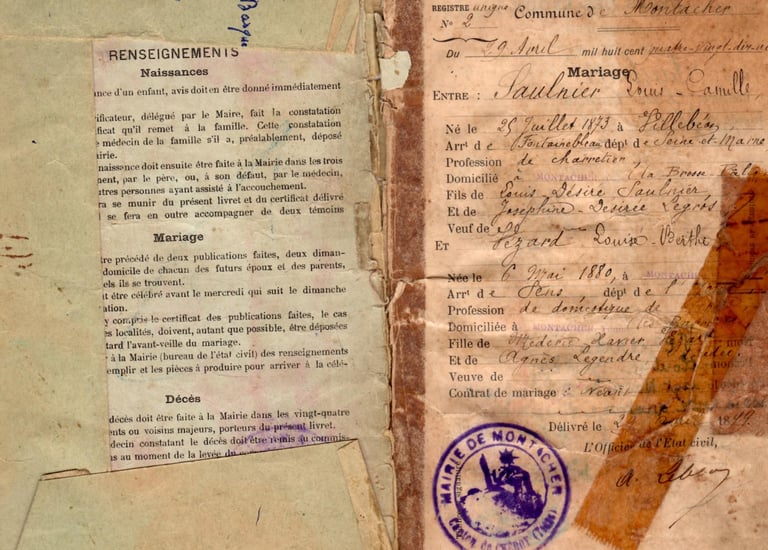 RENSEIGNEMENTS
Naissances
nce d'un enfant, avis doit en être donné immédiatement
ificateur, délégué par le Maire, fait la constatation
ficat qu'il remet à la famille. Cette constatation
médecin de la famille s'il a, préalablement, déposé
irie.
naissance doit ensuite être faite à la Mairie dans les trois
ment, par le père, ou, à son défaut, par le médecin,
utres personnes ayant assisté à l'accouchement.
ra se munir du présent livret et du certificat délivré
se fera en outre accompagner de deux témoins
Mariage
re précédé de deux publications faites, deux diman-
domicile de chacun des futurs époux et des parents,
els ils se trouvent.
t être célébré avant le mercredi qui suit le dimanche
ation.
y compris le certificat des publications faites, le cas
es localités, doivent, autant que possible, être déposées
tard l'avant-veille du mariage.
à la Mairie (bureau de l'état civil) des renseignements
emplir et les pièces à produire pour arriver à la célé-
Décès
décès doit être faite à la Mairie dans les vingt-quatre
nts ou voisins majeurs, porteurs du présent livret.
decin constatant le décès doit être remis au commis-
ns au moment de la levée du
REGISTRE unique
N° 2
Commune de Montacher
Du 29 Avril mil huit cent quatre-vingt-dix
Mariage
ENTRE : Saulnier Louis-Camille,
Né le 25 Juillet 1873 à Villebéon
Arrt de Fontainebleau dépt de Seine-et-Marne
Profession de charretier
Domicilié à MONTACHER
Fils de Louis Désiré Saulnier
Et de Joséphine-Desirée Legros
Veuf de
ET Pézard Louise-Berthe
Née le 6 Mai 1880, à MONTACHER
Arrt de Sens dépt de l'
Profession de domestique de
Domiciliée à MONTACHER
Fille de Médéric Xavier
Et de Agnès Legendre
Veuve de
Contrat de mariage : Néant
Délivré le 1899.
L'Officier de l'Etat civil,
MAIRIE DE MONTACHER